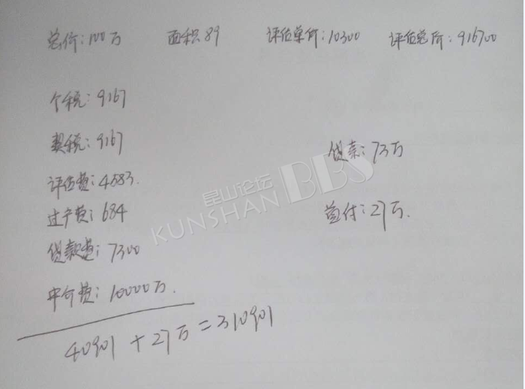 总价:100万 面积89 评估单价:10300 评估总价:916700
个税:9167
契税:9167
评估费:4883.
过户费:684
贷款费:7300
中介费:10000万.
贷款:73万
首付:27万.
40901+27万=310901
昆山论坛
KUNSHAN BBS